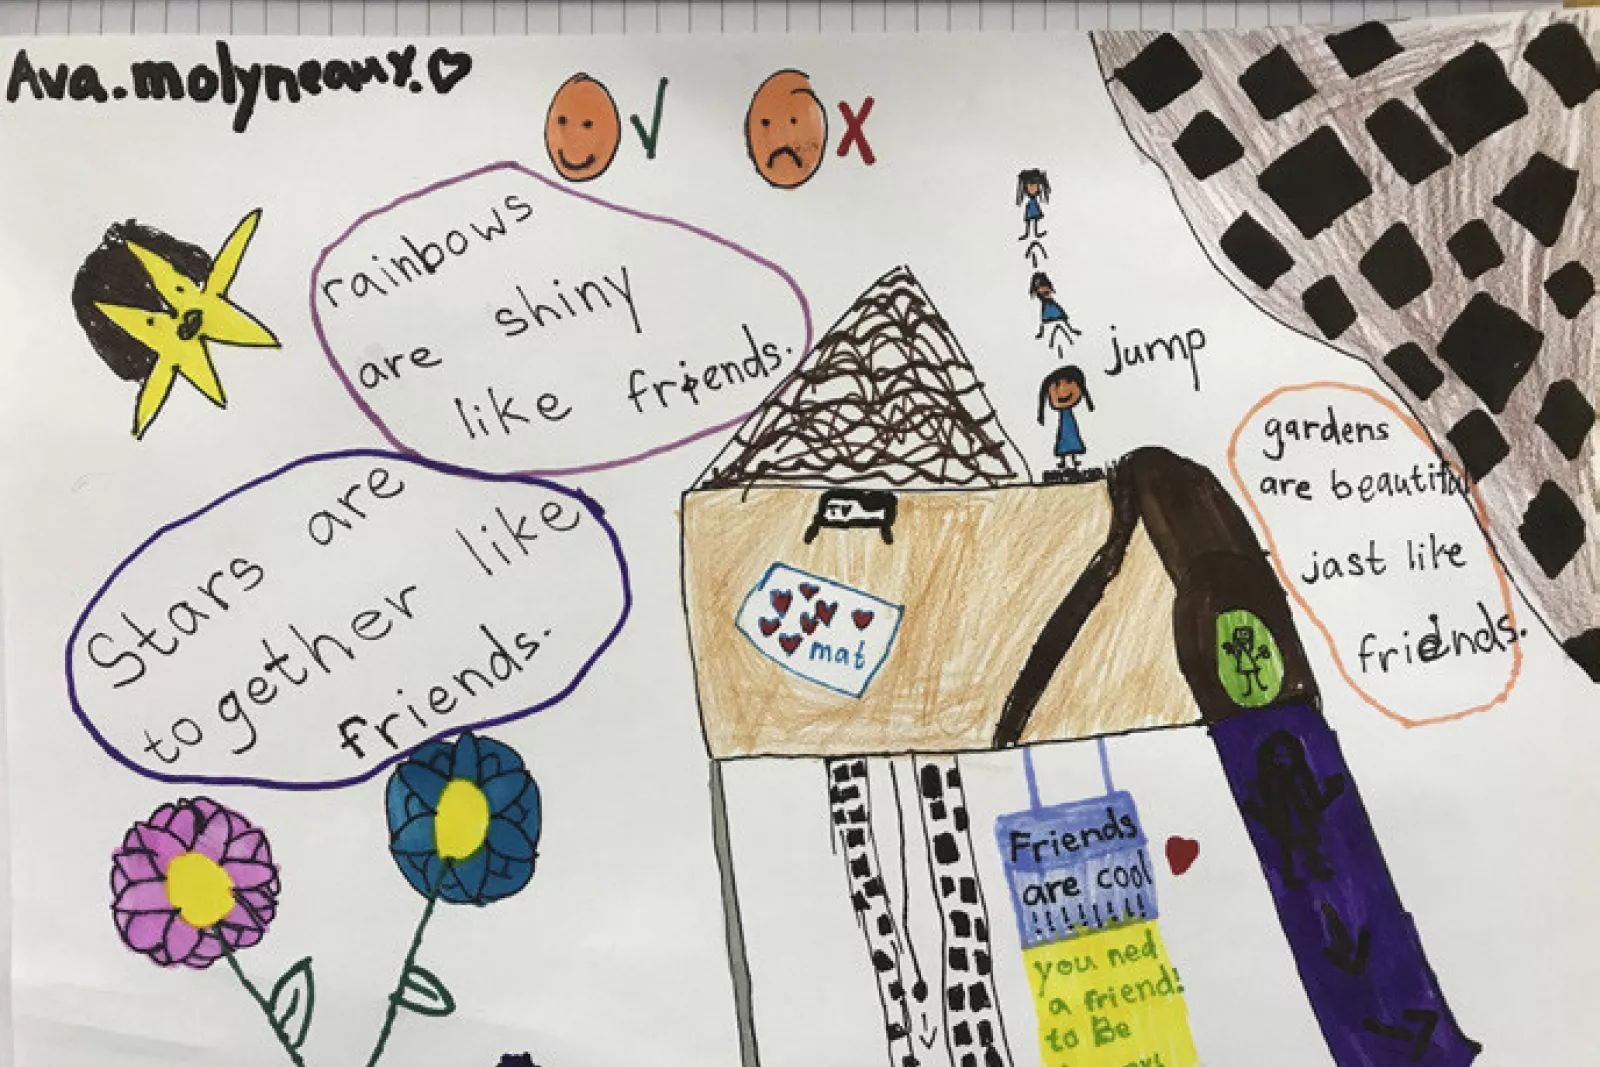 Ava.molyneaux.
rainbows
are shiny
like friends.
Stars are
together like
friends.
jump
gardens
are beautiful
jast like
friends.
TV
mat
Friends
are cool
!!!!!!!!
you ned
a friend!
to Be